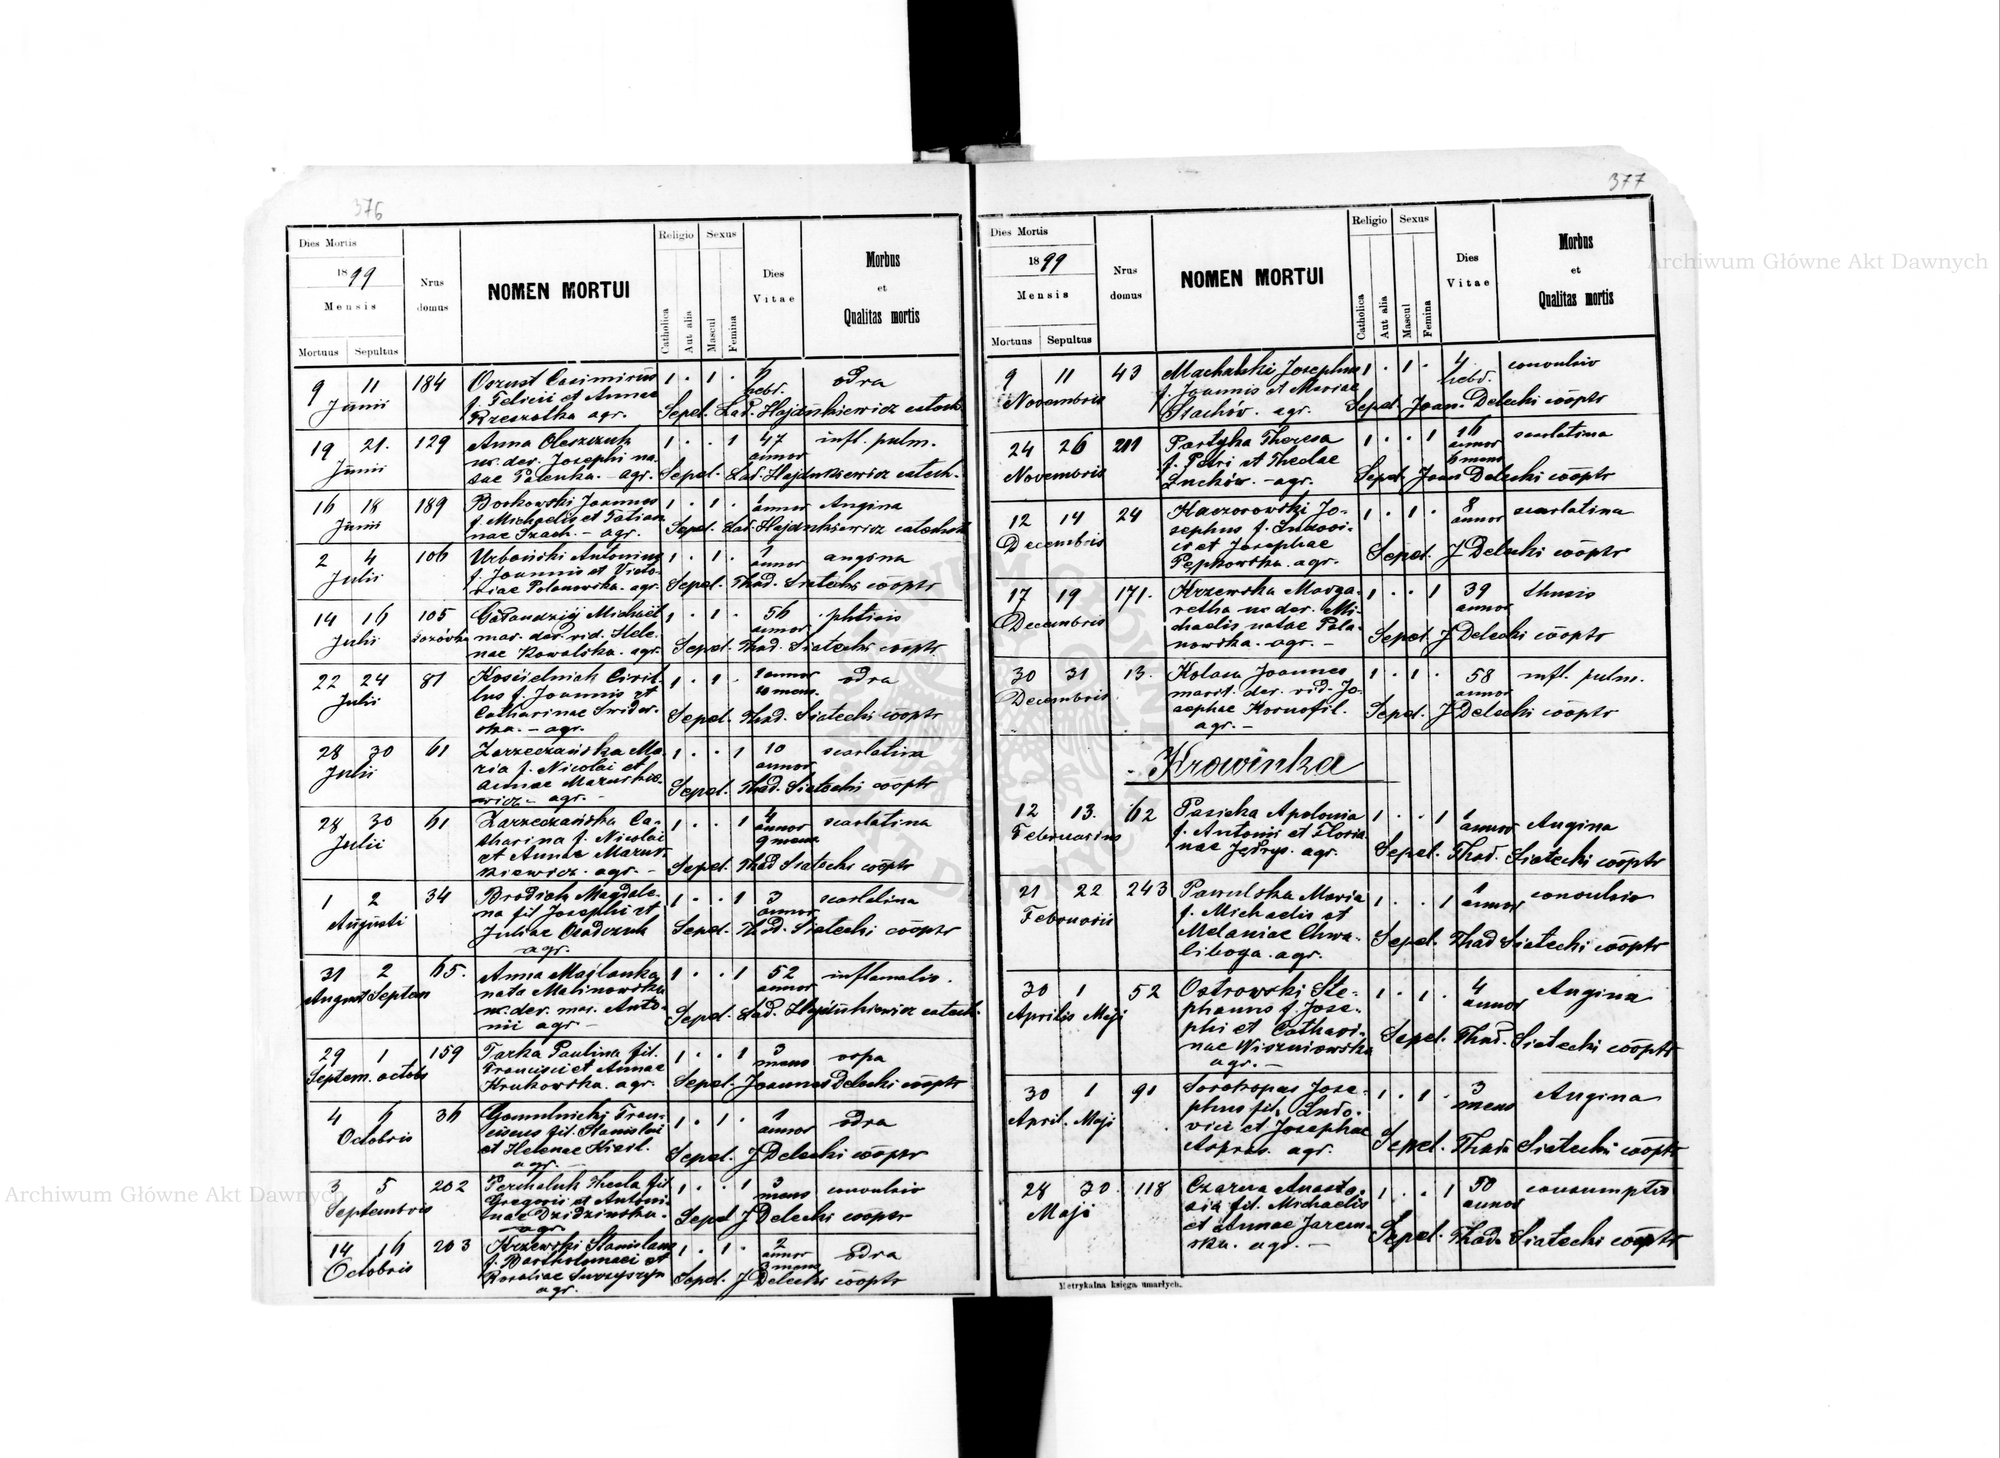 376
Dies Mortis
1899
Mensis
Mortuus Sepultus
Nrus domus
NOMEN MORTUI
Religio
Catholica
Aut alia
Sexus
Mascul
Femina
Dies Vitae
Morbus
et
Qualitas mortis
9 11 184 Casimirus 1 · 1 · hebd. odra
Junii f. Felicii et Annae
Rzeszotka agr. Sepel. Lad. Hajdukiewicz catech.
19 21. 129 Anna Oleszczuk 1 · · 1 47 infl. pulm.
Junii ux. der. Josephi na- annor
tae Palenka. - agr. Sepel. Lad. Hajdukiewicz catech.
16 18 189 Borkowski Joannes 1 · 1 · 1 Angina
Junii f. Michaelis et Tatian- annor
nae - agr. Sepel. Lad. Hajdukiewicz catech.
2 4 106 Urbański Antonius 1 · 1 · 1 angina
Julii f. Joannis et Victo- annor
riae Polanowska. agr. Sepel. Thad. Siatecki cooptr
14 16 105 Michael 1 · 1 · 56 phtisis
Julii mar. der. rid. Hele- annor
nae Kowalska. agr. Sepel. Thad. Siatecki cooptr.
22 24 81 Kościelniak Ciril- 1 · 1 · 1 annor odra
Julii lus f. Joannis et 10 mens.
Catharinae Swider- Sepel. Thad. Siatecki cooptr
ska. - agr.
28 30 61 Zarzeczańska Ma- 1 · · 1 10 scarlatina
Julii ria f. Nicolai et annor
Annae Mazurkie- Sepel. Thad. Siatecki cooptr
wicz - agr. -
28 30 61 Zarzeczańska Ca- 1 · · 1 4 scarlatina
Julii tharina f. Nicolai annor
et Annae Mazur- 9 mens
kiewicz. agr. - Sepel. Thad Siatecki cooptr
1 2 34 Brodiak Magdale- 1 · · 1 3 scarlatina
Augusti na fil Josephi et annor
Juliae Osadczuk Sepel. Thad. Siatecki cooptr
agr.
31 2 65. Anna Maślanka 1 · · 1 52 inflamatio.
August Septem nata Malinowska annor
ux. der. mar. Anto- Sepel. Lad. Hajdukiewicz catech.
nii agr -
29 1 159 Tarka Paulina fil. 1 · · 1 3 ospa
Septem. octob Francisci et Annae mens
Krukowska. agr. Sepel. Joannes Delecki cooptr
4 6 36 Gomulnicki Fran- 1 · 1 · 1 odra
Octobris ciscus fil. Stanislai annor
et Helenae Sepel. J Delecki cooptr
agr.
3 5 202 Perchaluk Thecla fil 1 · · 1 3 convulsio
Septembris Gregorii et Antoni- mens
nae Dzidzinska. Sepel J Delecki cooptr
agr.
14 16 203 Krzewski Stanislaus 1 · 1 · 2 odra
Octobris f. Bartholomaei et annor 3 mens
Rosaliae agr. Sepel. J Delecki cooptr
377
Dies Mortis
1899
Mensis
Mortuus Sepultus
Nrus domus
NOMEN MORTUI
Religio
Catholica
Aut alia
Sexus
Mascul
Femina
Dies Vitae
Morbus
et
Qualitas mortis
9 11 43 Machalski Josephus 1 · 1 · 4 convulsio
Novembris f. Joannis et Mariae hebd.
Stachów. agr. Sepel. Joan. Delecki cooptr
24 26 211 Partyka Theresa 1 · · 1 16 scarlatina
Novembris f. Petri et Theclae annor 6 mens
Luchów. - agr. Sepel. Joan Delecki cooptr
12 14 24 Kaczorowski Jo- 1 · 1 · 8 scarlatina
Decembris sephus f. Ludovi- annor
ci et Josephae Sepel. J Delecki cooptr
Pępkowska. agr.
17 19 171. Krzewska Marga- 1 · · 1 39 thusis
Decembris retha ux der. Mi- annor
chaelis natae Pola- Sepel. J Delecki cooptr
nowska. agr. -
30 31 13. Kolasa Joannes 1 · 1 · 58 infl. pulm.
Decembris marit. der. rid. Jo- annor
sephae Kornofil. Sepel. J Delecki cooptr
agr. -
- Krowinka
12 13. 62 Pasicka Apolonia 1 · · 1 1 Angina
Februarius f. Antonii et Floria- annor
nae Jędrys. agr. Sepel. Thad. Siatecki cooptr
21 22 243 Pawulska Maria 1 · · 1 1 convulsio
Februarii f. Michaelis et annor
Melaniae Chwa- Sepel. Thad Siatecki cooptr
liboga. agr.
30 1 52 Ostrowski Ste- 1 · 1 · 4 Angina
Aprilis Maji phanus f. Jose- annor
phi et Cathari- Sepel. Thad. Siatecki cooptr
nae Wiszniowska
agr. -
30 1 91 Sorokopas Jose- 1 · 1 · 3 Angina
April. Maji phus fil. Ludo- mens
vici et Josephae Sepel. Thad. Siatecki cooptr
agr.
28 30. 118 Czarna Anasta- 1 · · 1 50 consumptio
Maji sia fil. Michaelis annor
et Annae Jarem- Sepel. Thad. Siatecki cooptr
ska. agr. -
Metrykalna księga umarłych.
Archiwum Główne Akt Dawnych
Archiwum Główne Akt Dawnych
ARCHIWUM GŁÓWNE AKT DAWNYCH